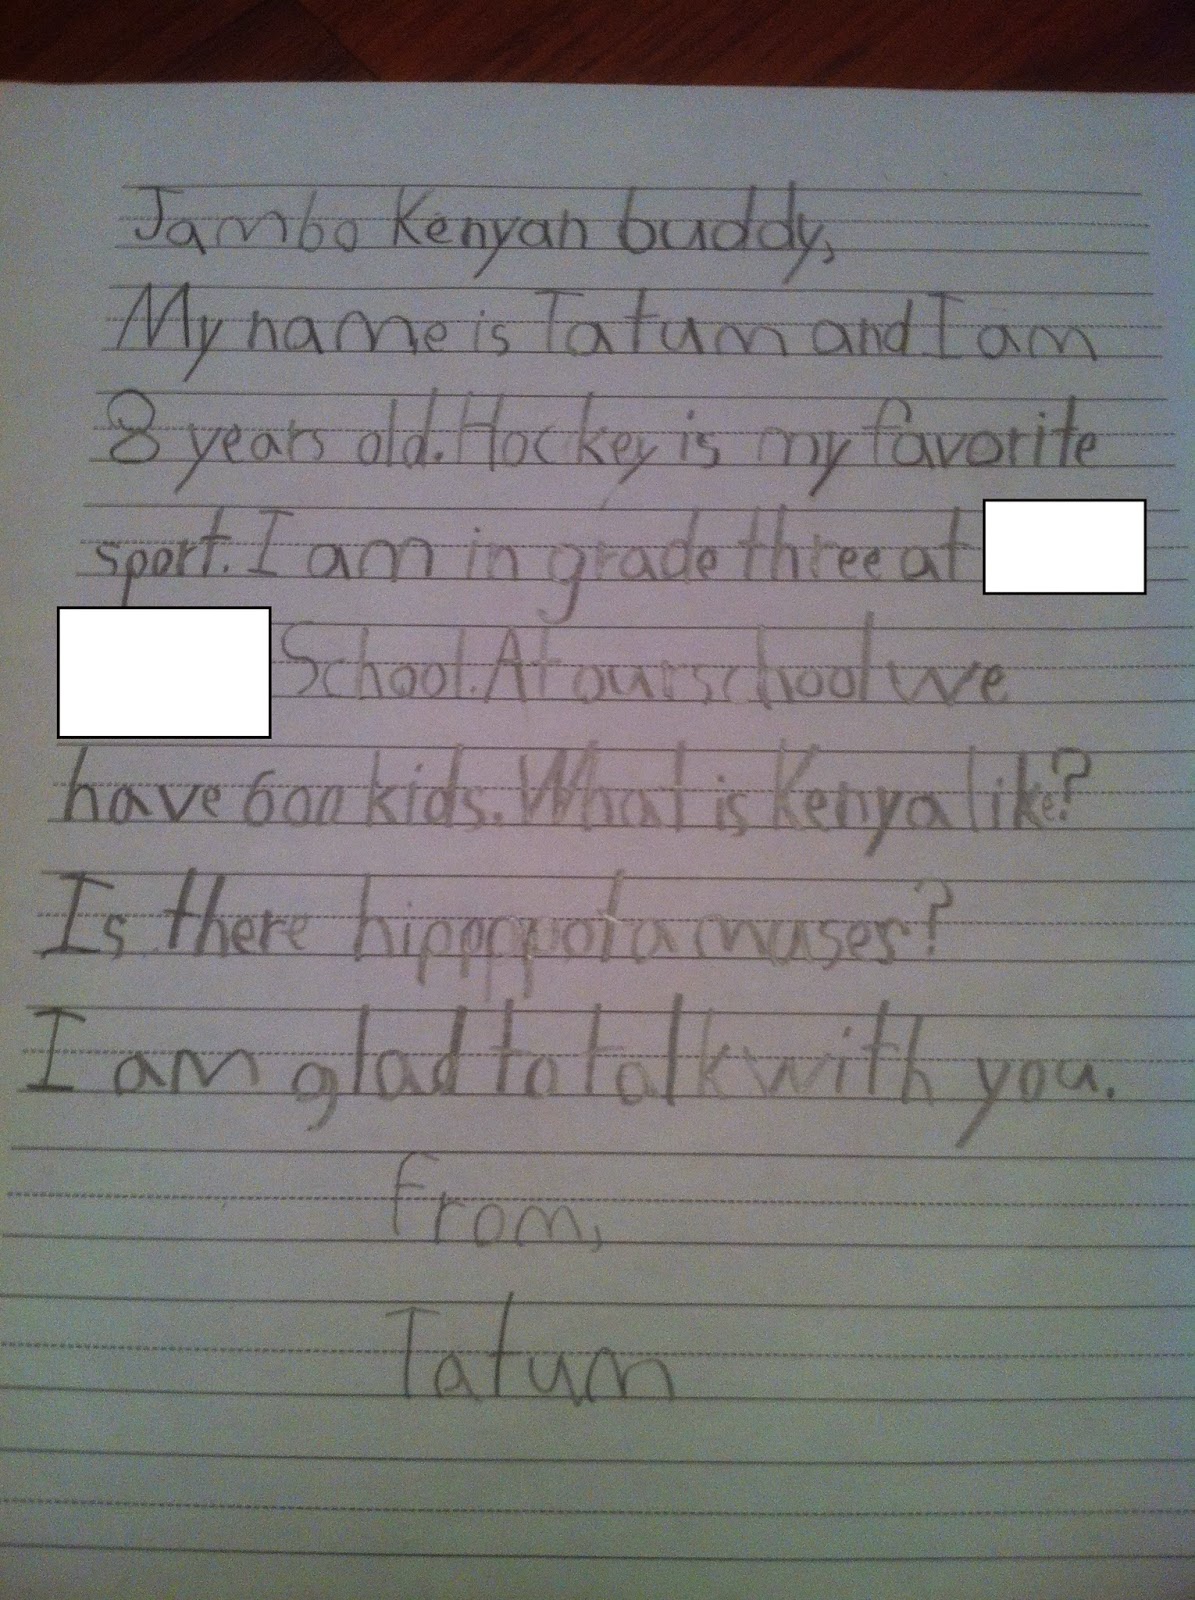 Jambo Kenyan buddy,
My name is Tatum and I am
8 years old. Hockey is my favorite
sport. I am in grade three at
School. At our school we
have 600 kids. What is Kenya like?
Is there hipppotamuses?
I am glad to talk with you.
From,
Tatum